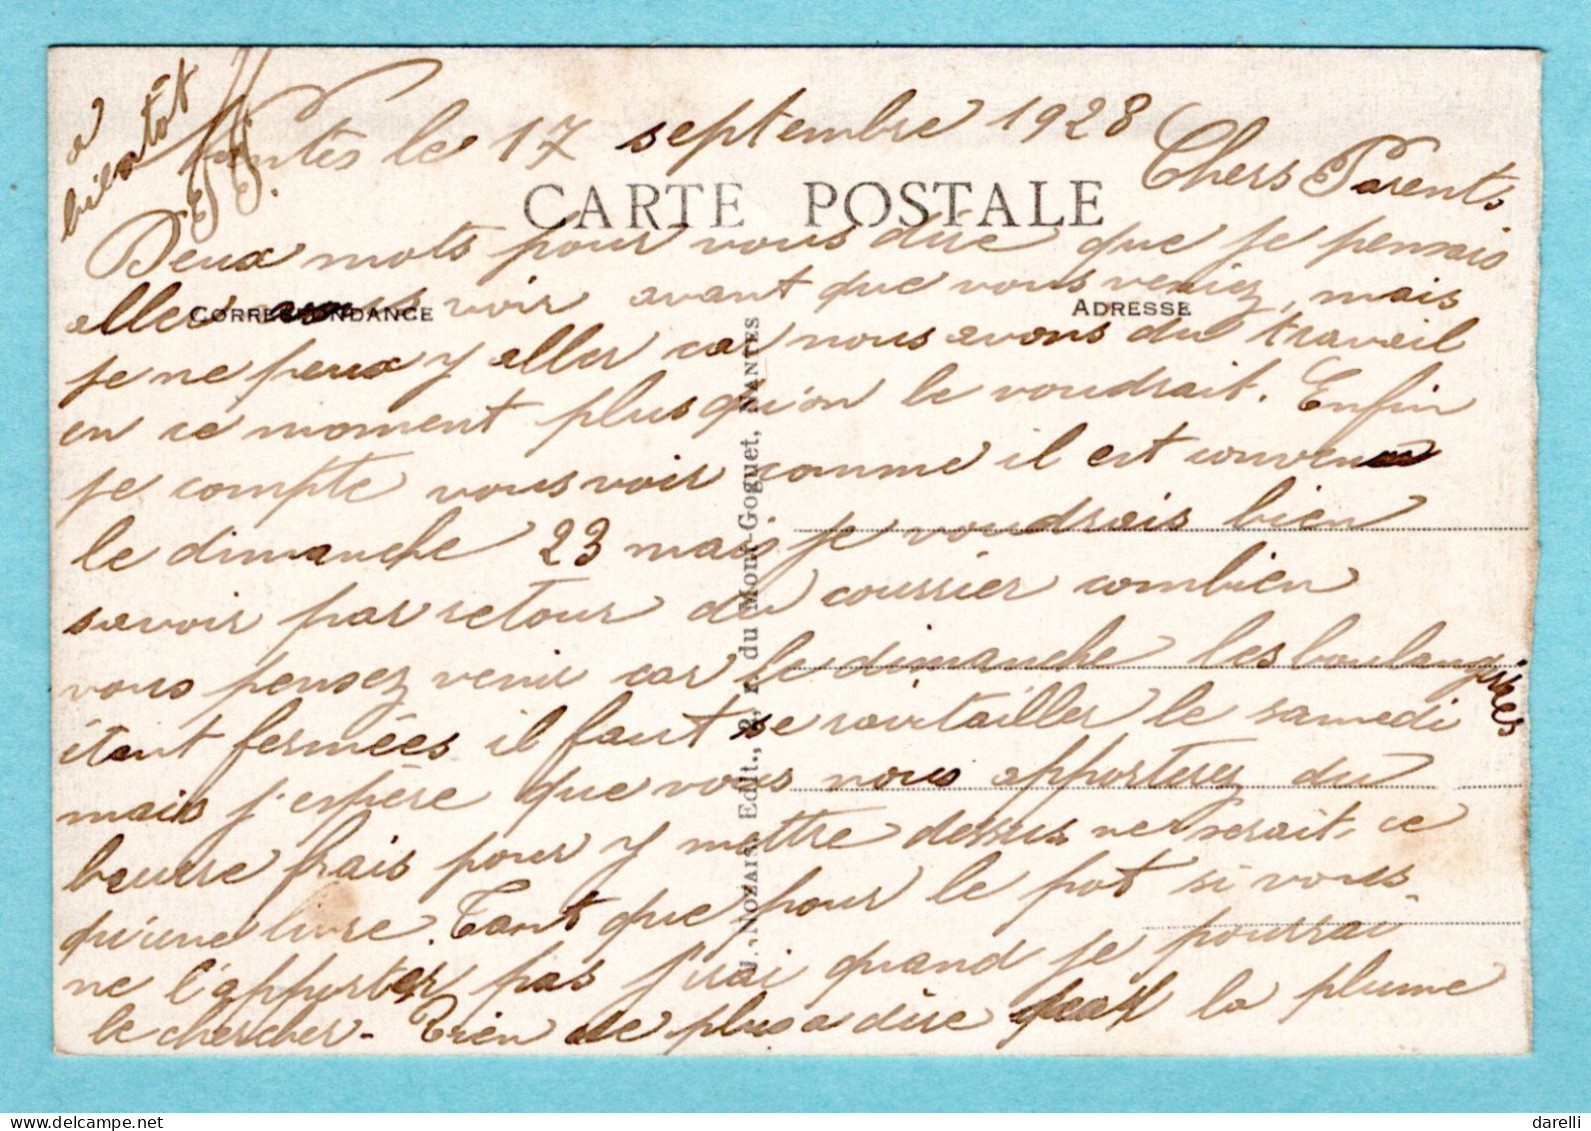 Nantes le 17 septembre 1928
CARTE POSTALE
Chers Parents
Deux mots pour vous dire que je pensais
aller vous voir avant que vous veniez, mais
CORRESPONDANCE
ADRESSE
je ne peux y aller car nous avons du travail
en ce moment plus qu'on le voudrait. Enfin
je compte vous voir comme il est convenu
le dimanche 23 mais je voudrais bien
savoir par retour du courrier combien
vous pensez venir car le dimanche les boulangeries
étant fermées il faut se ravitailler le samedi
mais j'espère que vous nous apporterez du
beurre frais pour y mettre dessus ne serait-ce
qu'une livre. Tant que pour le pot si vous
ne l'apporter pas j'irai quand je pourrai
le chercher - Rien de plus a dire par la plume
a
bientôt
J. NOZAIS, Edit., 2, r. du Mont-Goguet, NANTES
darelli